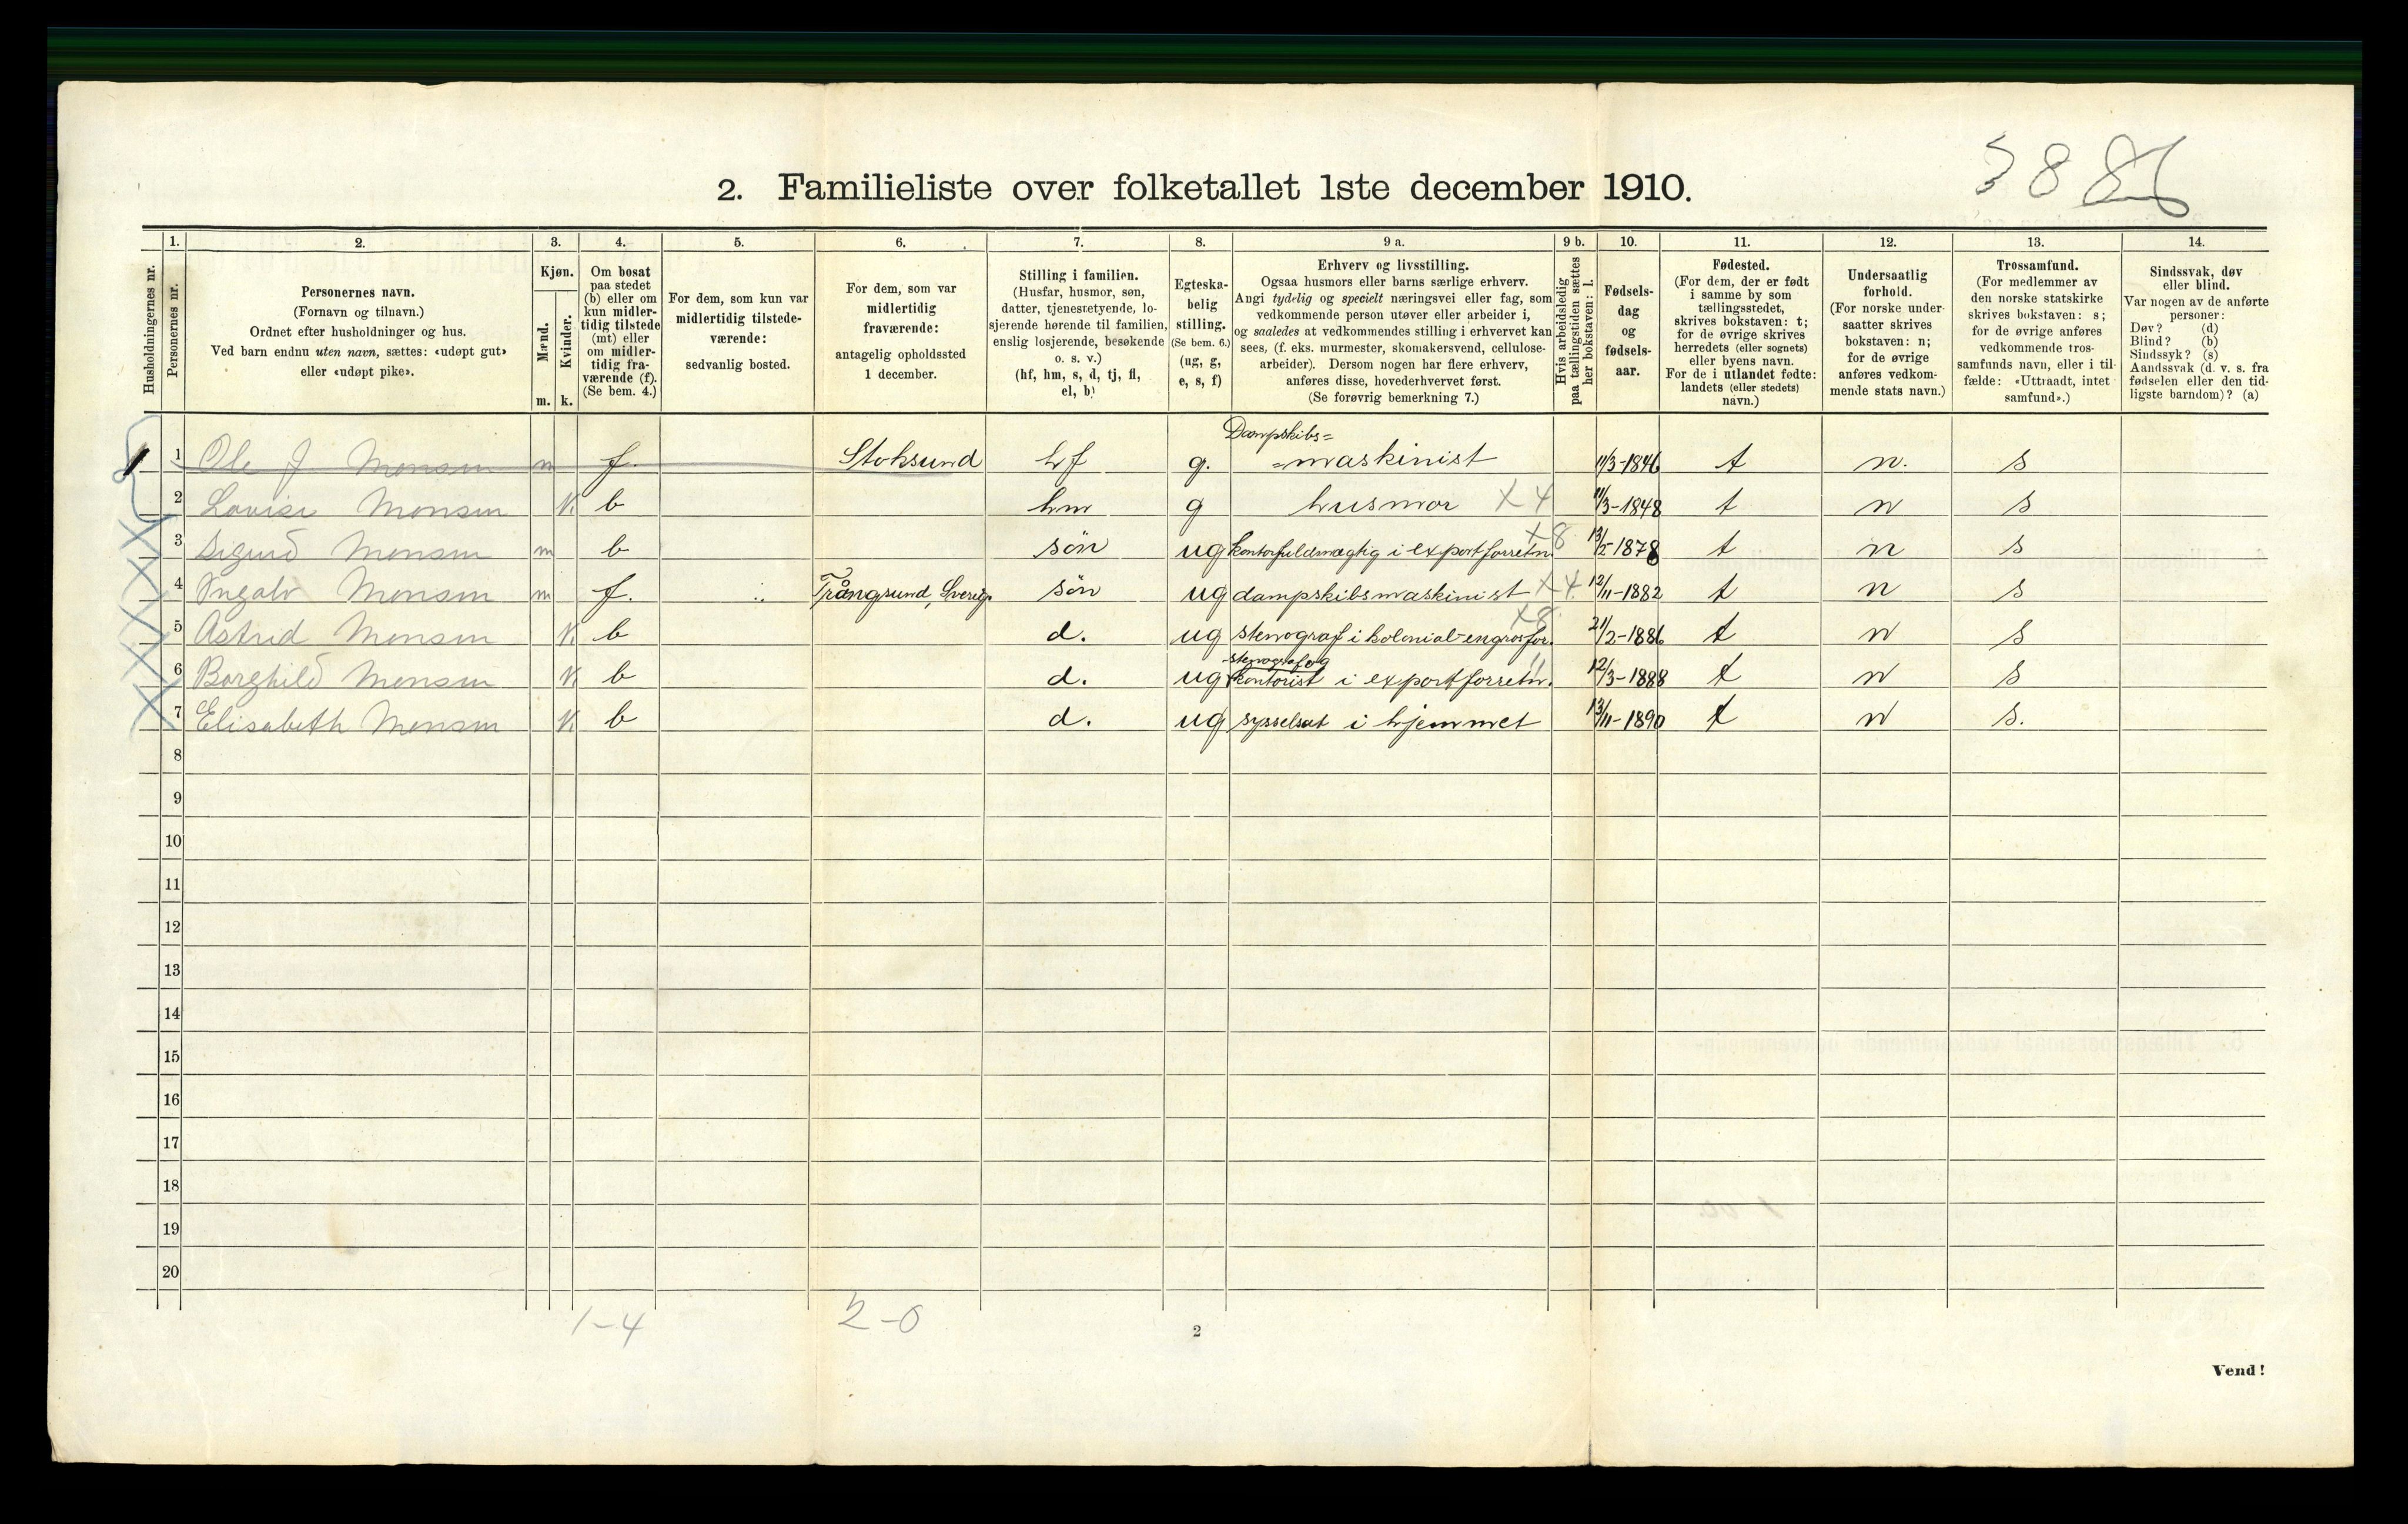 2. Familieliste over folketallet 1ste december 1910.
388
1. 2. 3. 4. 5. 6. 7. 8. 9 a. 9 b. 10. 11. 12. 13. 14.
Husholdningernes nr.
Personernes nr.
Personernes navn.
(Fornavn og tilnavn.)
Ordnet efter husholdninger og hus.
Ved barn endnu uten navn, sættes: «udøpt gut»
eller «udøpt pike».
Kjøn.
Mænd.
Kvinder.
m. k.
Om bosat
paa stedet
(b) eller om
kun midler-
tidig tilstede
(mt) eller
om midler-
tidig fra-
værende (f).
(Se bem. 4.)
For dem, som kun var
midlertidig tilstede-
værende:
sedvanlig bosted.
For dem, som var
midlertidig
fraværende:
antagelig opholdssted
1 december.
Stilling i familien.
(Husfar, husmor, søn,
datter, tjenestetyende, lo-
sjerende hørende til familien,
enslig losjerende, besøkende
o. s. v.)
(hf, hm, s, d, tj, fl,
el, b)
Egteska-
belig
stilling.
(Se bem. 6.)
(ug, g,
e, s, f)
Erhverv og livsstilling.
Ogsaa husmors eller barns særlige erhverv.
Angi tydelig og specielt næringsvei eller fag, som
vedkommende person utøver eller arbeider i,
og saaledes at vedkommendes stilling i erhvervet kan
sees, (f. eks. murmester, skomakersvend, cellulose-
arbeider). Dersom nogen har flere erhverv,
anføres disse, hovederhvervet først.
(Se forøvrig bemerkning 7.)
Hvis arbeidsledig
paa tællingstiden sættes
her bokstaven: l.
Fødsels-
dag
og
fødsels-
aar.
Fødested.
(For dem, der er født
i samme by som
tællingsstedet,
skrives bokstaven: t;
for de øvrige skrives
herredets (eller sognets)
eller byens navn.
For de i utlandet fødte:
landets (eller stedets)
navn.)
Undersaatlig
forhold.
(For norske under-
saatter skrives
bokstaven: n;
for de øvrige
anføres vedkom-
mende stats navn.)
Trossamfund.
(For medlemmer av
den norske statskirke
skrives bokstaven: s;
for de øvrige anføres
vedkommende tros-
samfunds navn, eller i til-
fælde: «Uttraadt, intet
samfund».)
Sindssvak, døv
eller blind.
Var nogen av de anførte
personer:
Døv? (d)
Blind? (b)
Sindssyk? (s)
Aandssvak (d. v. s. fra
fødselen eller den tid-
ligste barndom)? (a)
Dampskibs=
1 1 Ole J. Monsen m f. Stoksund hf g. =maskinist 11/3-1846 t n. s
2 Lovise Monsen k. b hm g husmor X 4 11/3-1848 t n s
3 Sigurd Monsen m b søn ug kontorfuldmægtig i exportforretn. X8 13/2-1878 t n s
4 Ingolv Monsen m f. Trångsund, Sverige søn ug dampskibsmaskinist X4 12/11-1882 t n s
5 Astrid Monsen k. b d. ug stenograf i kolonial-engrosfor. X8 21/2-1886 t n s
stenograf og
6 Borghild Monsen k. b d. ug kontorist i exportforretn. " 12/3-1888 t n s
7 Elisabeth Monsen k. b d. ug sysselsat i hjemmet 13/11-1890 t n s.
8
9
10
11
12
13
14
15
16
17
18
19
20
1-4 2-0
2
Vend!